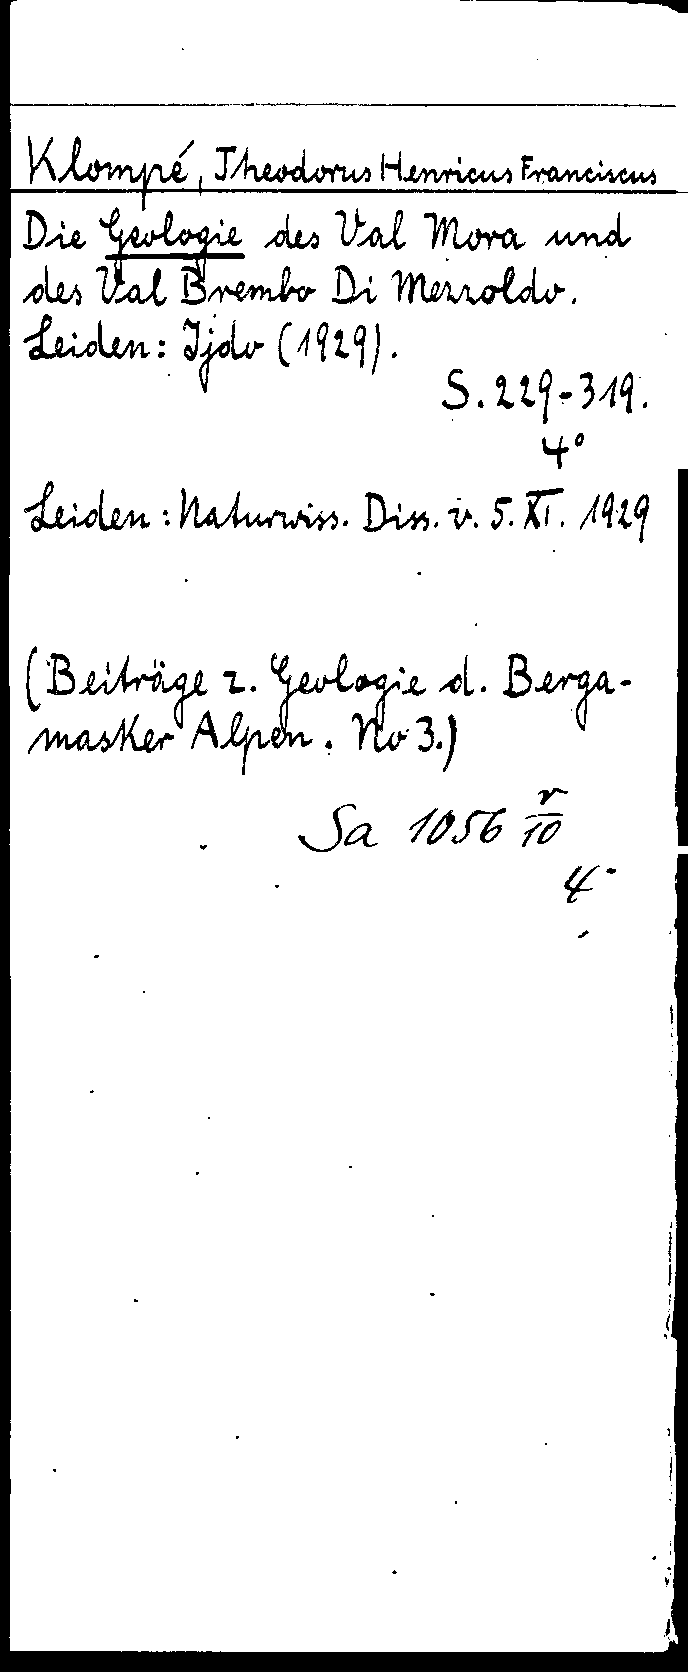 Klompé, Theodorus Henricus Franciscus
Die Geologie des Val Mora und
des Val Brembo Di Mezzoldo.
Leiden: Ijdo (1929).
S. 229-319.
4°
Leiden: Naturwiss. Diss. v. 5. XI. 1929
(Beiträge z. Geologie d. Berga-
masker Alpen. No 3.)
Sa 1056 r/10
4°